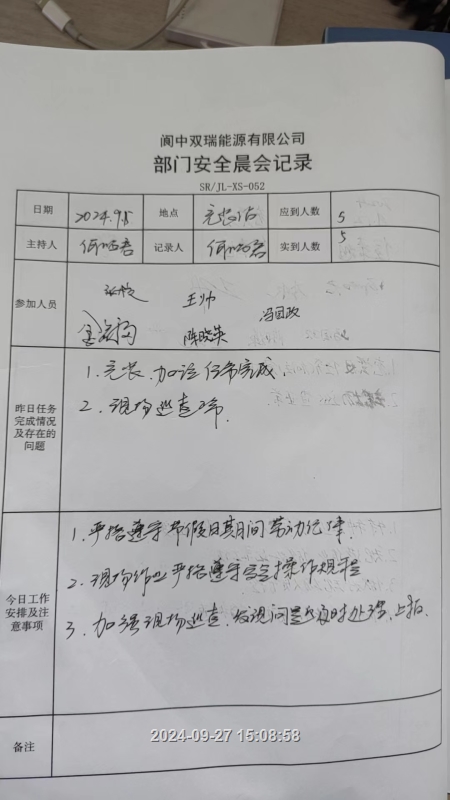 阆中双瑞能源有限公司
部门安全晨会记录
SR/JL-XS-052
日期 2024.9.5 地点 充装站 应到人数 5
主持人 记录人 实到人数 5
参加人员
王帅 冯国政
陈晓英
昨日任务完成情况及存在的问题
1. 充装、加注任务完成.
2. 现场巡查正常.
今日工作安排及注意事项
1. 严格遵守节假日期间劳动纪律.
2. 现场作业严格遵守安全操作规程
3. 加强现场巡查,发现问题及时处理、上报.
备注
2024-09-27 15:08:58